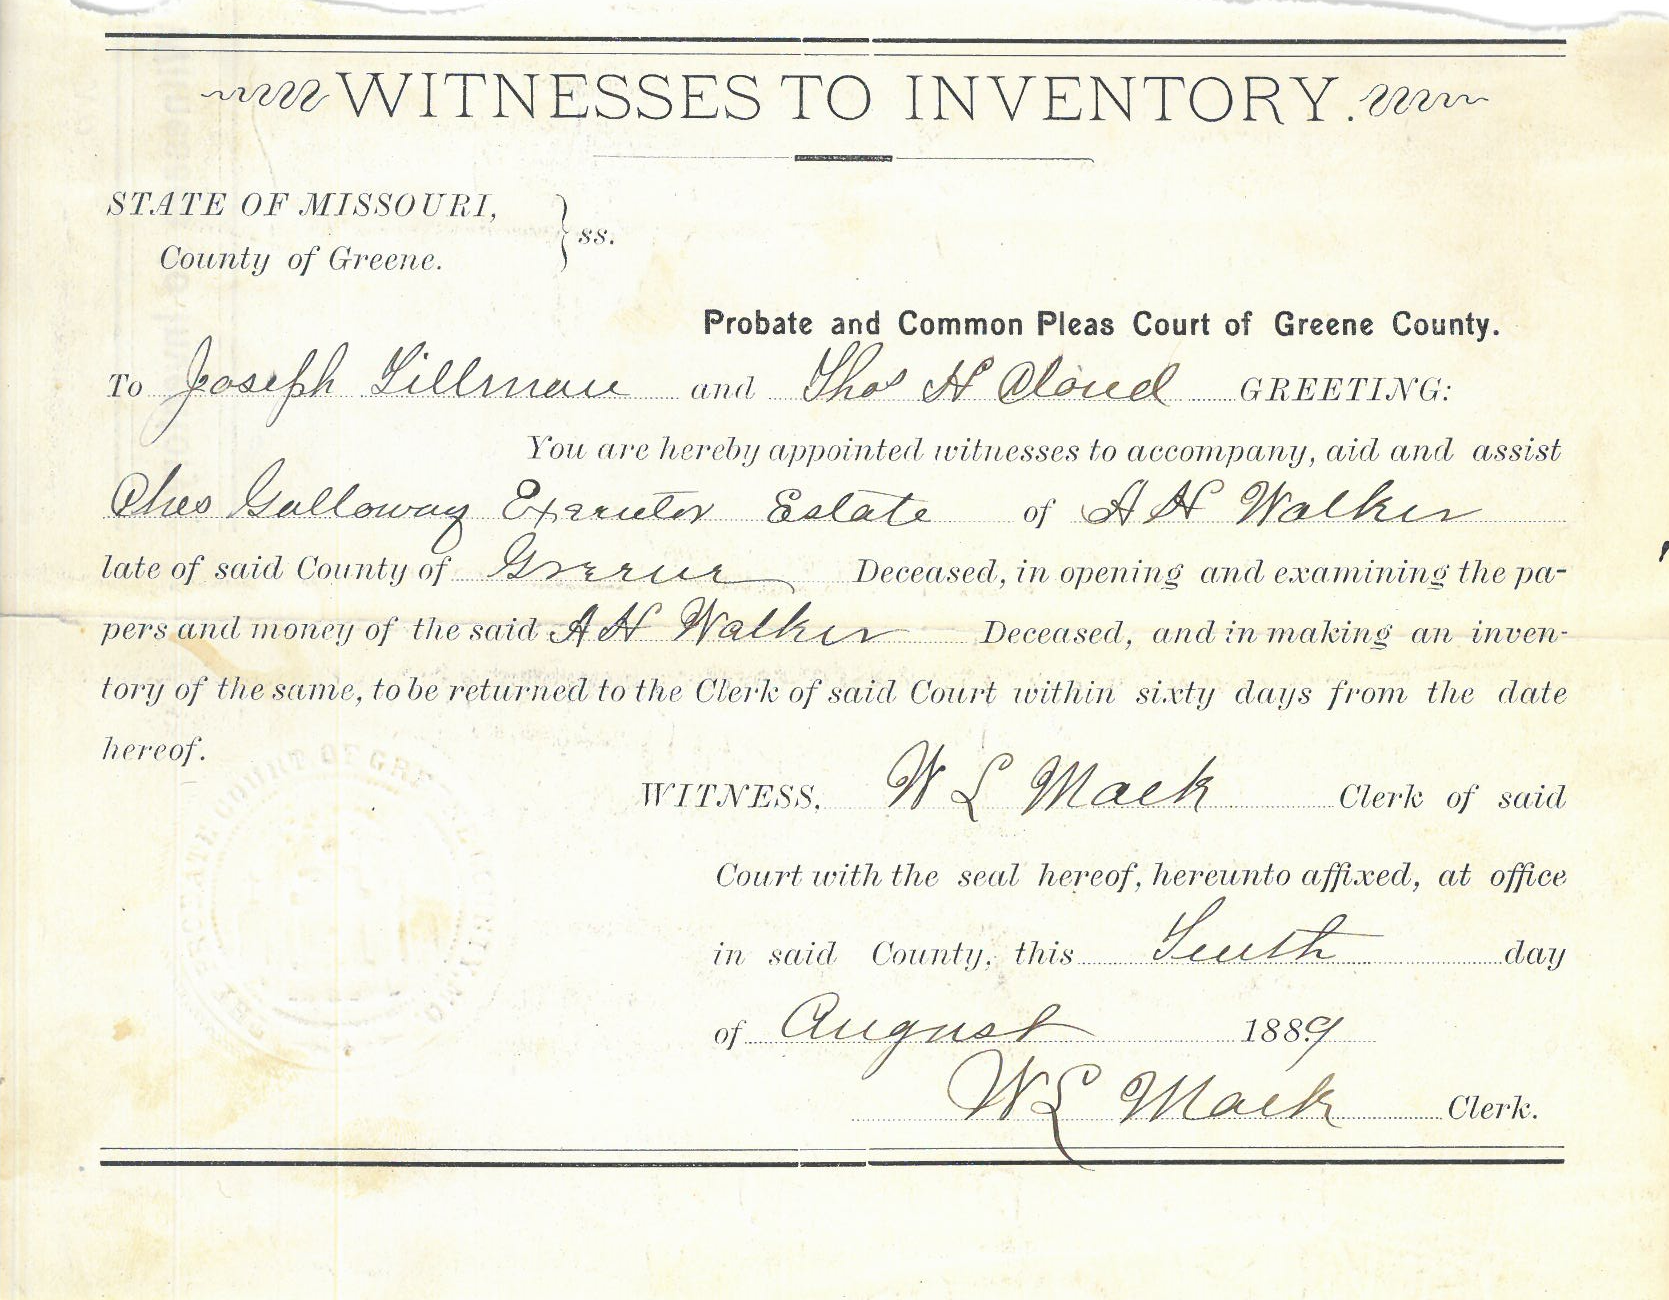 WITNESSES TO INVENTORY.
STATE OF MISSOURI,
County of Greene.
} ss.
Probate and Common Pleas Court of Greene County.
To Joseph Tillman and Thos H Cloud GREETING:
You are hereby appointed witnesses to accompany, aid and assist
Ches Galloway Executor Estate of A H Walker
late of said County of Greene Deceased, in opening and examining the pa-
pers and money of the said A H Walker Deceased, and in making an inven-
tory of the same, to be returned to the Clerk of said Court within sixty days from the date
hereof.
WITNESS, W L Mack Clerk of said
Court with the seal hereof, hereunto affixed, at office
in said County, this Tenth day
of August 1889
W L Mack Clerk.
PROBATE COURT OF GREENE COUNTY MO.